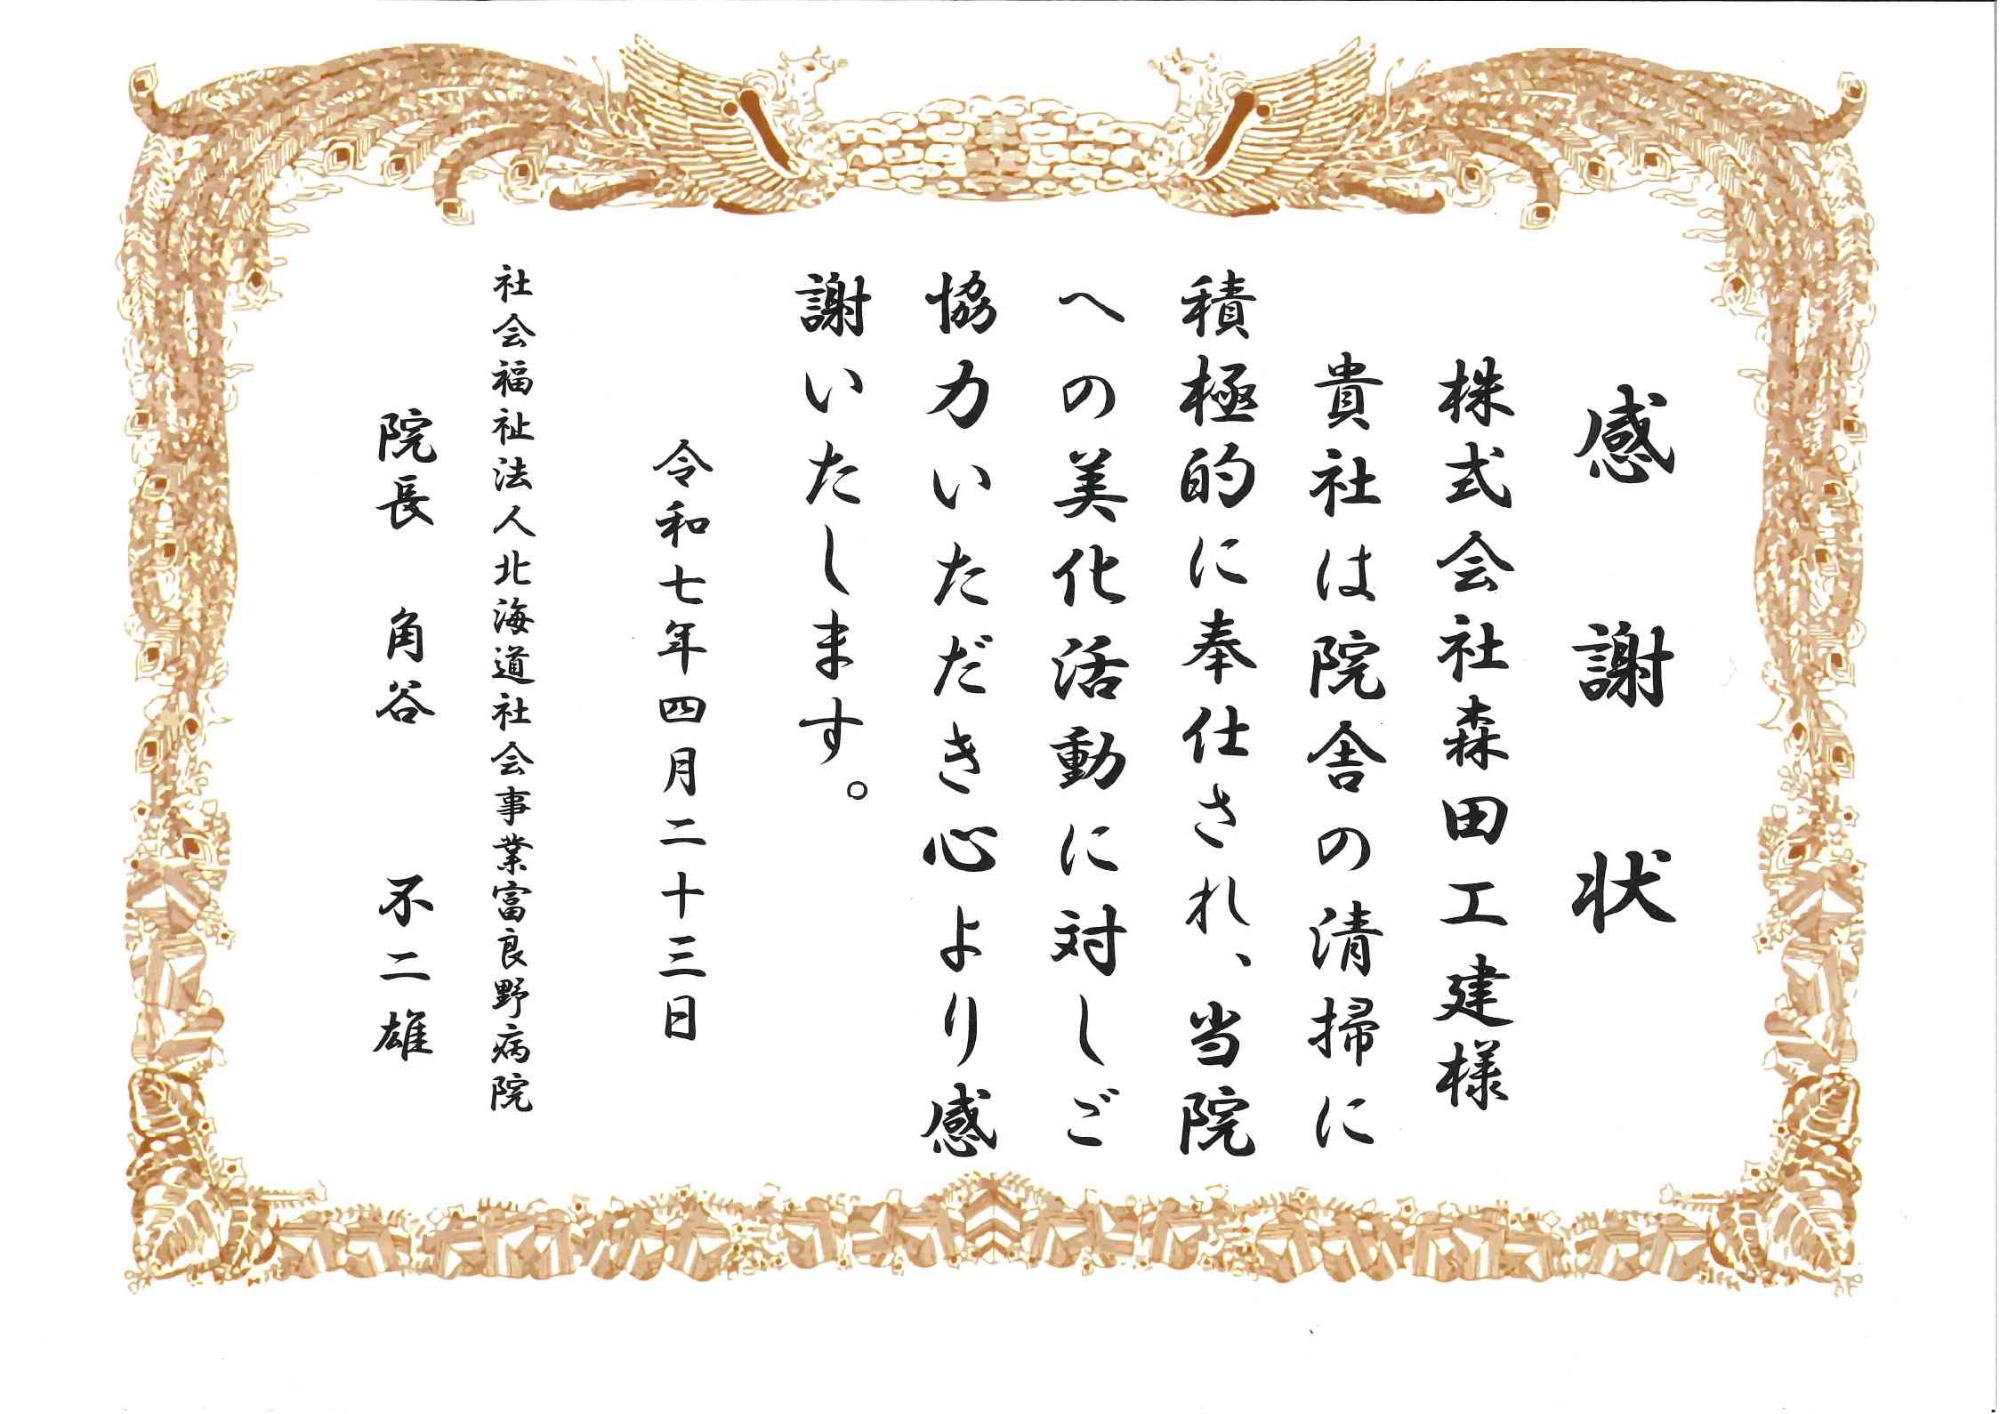 感謝状
株式会社森田工建様
貴社は院舎の清掃に
積極的に奉仕され、当院
への美化活動に対しご
協力いただき心より感
謝いたします。
令和七年四月二十三日
社会福祉法人北海道社会事業富良野病院
院長 角谷 不二雄